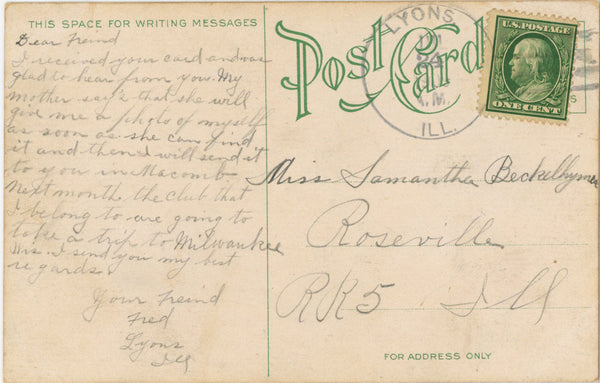 THIS SPACE FOR WRITING MESSAGES
Dear Freind
I received your card and was
glad to hear from you. My
mother say's that she will
give me a photo of myself
as soon as she can find
it and then I will send it
to you in Macomb
Next month the club that
I belong to are going to
take a trip to Milwaukee
Wis. I send you my best
regards.
Your Freind
Fred
Lyons
Ill
Post Card
LYONS
A.M.
ILL.
U.S. POSTAGE
ONE CENT
Miss Samantha Beckelhymer
Roseville
RR5 Ill
FOR ADDRESS ONLY